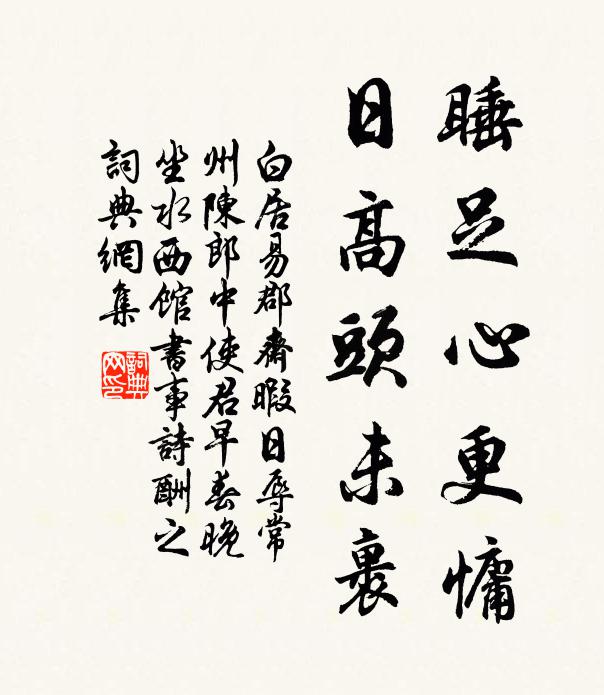 睡足心更慵
日高頭未裹
白居易郡齋暇日辱常
州陳郎中使君早春晚
坐水西館書事詩酬之
詞典網集
詞典網印